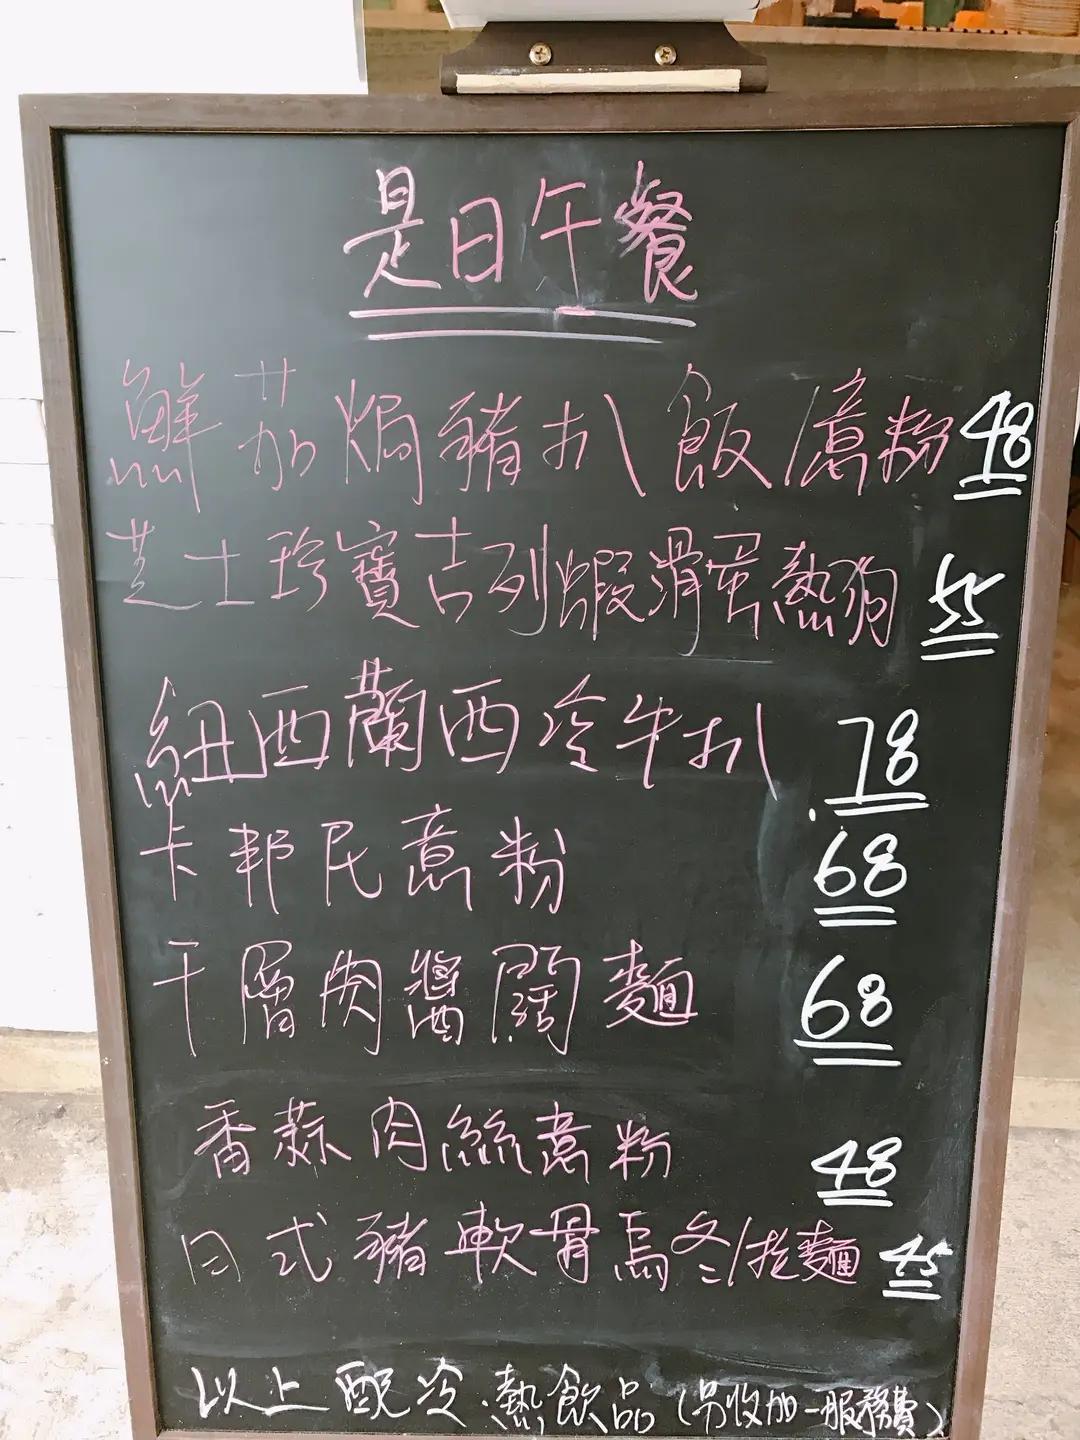 是日午餐
鮮茄焗豬扒飯/意粉 48
芝士珍寶吉列蝦滑蛋熱狗 55
紐西蘭西冷牛扒 78
卡邦尼意粉 68
千層肉醬闊麵 68
香蒜肉絲意粉 48
日式豬軟骨烏冬/拉麵 45
以上配冷.熱飲品(另收加一服務費)